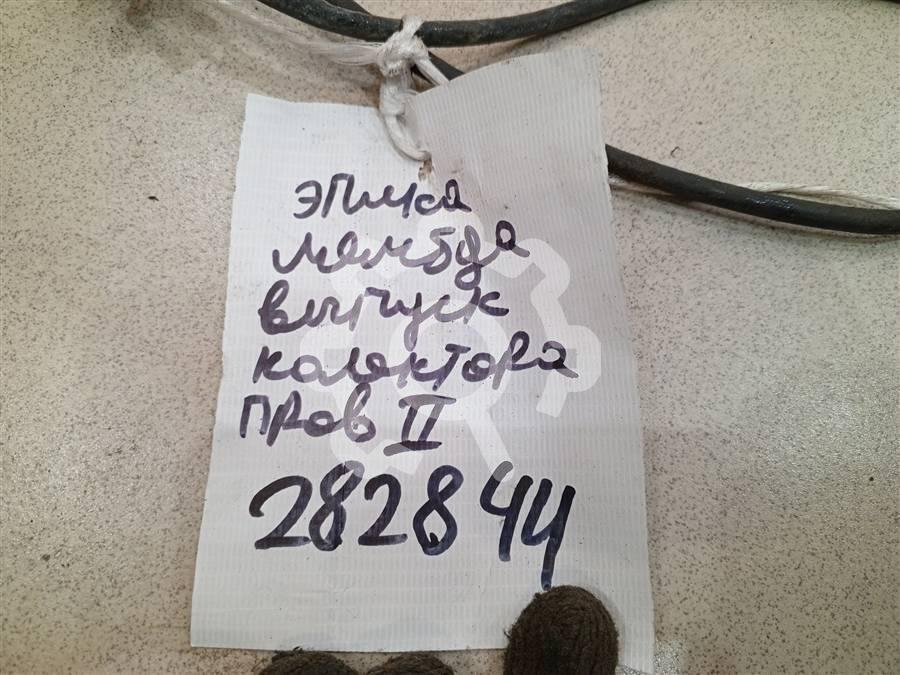 эпика
лямбда
выпуск
колектора
прав II
282844